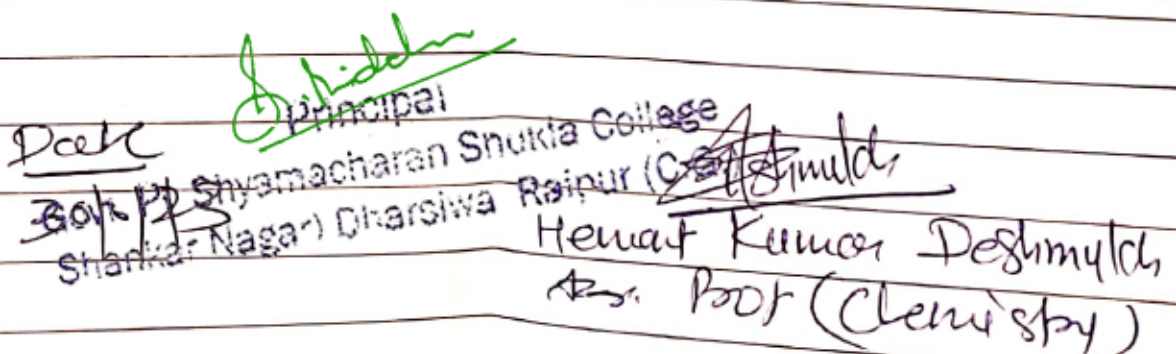 Principal
Date
Govt. Pt. Shyamacharan Shukla College
Shankar Nagar) Dharsiwa Raipur (C.G.)
Hemant Kumar Deshmukh
Prof (Chemistry)